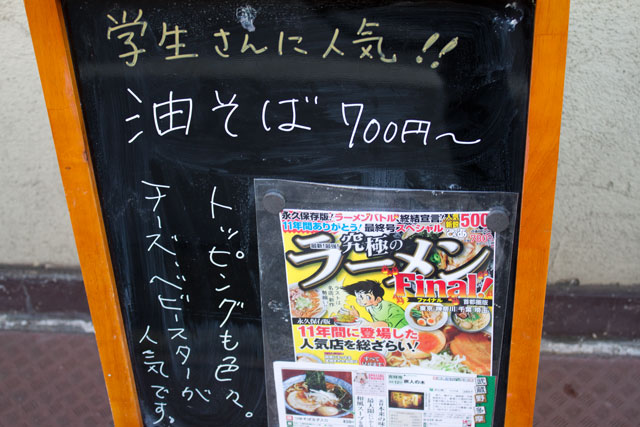 学生さんに人気!!
油そば 700円～
トッピングも色々。
チーズ、ベビースターが
人気です。
永久保存版!ラーメンバトル、終結宣言!
11年間ありがとう!最終号スペシャル
500
究極の
ラーメン
Final!
ファイナル
首都圏版
東京・神奈川・千葉・埼玉
永久保存版
11年間に登場した
人気店を総ざらい!
旅人の木
武蔵野多摩